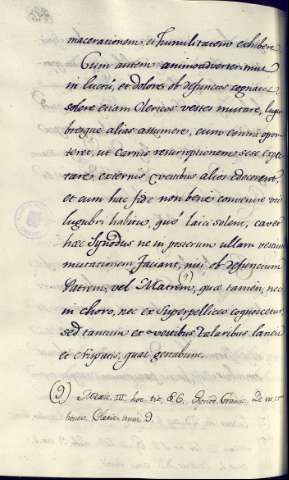 macerationem, et humilitatem exhibere
Cum autem animadverterimus
in luctu, et dolore ob defunctos cognatos
solere etiam Clericos vestes mutare, lugu
bresque alias assumere, cum omnino opor
teret, ut carnis resurrectionem sese expec
tare externis vestibus alios edocerent,
et cum hac fide non bene convenire
lugubri habitu, quo laici solent, cavet
hæc Synodus ne in posterum ullam vestium
mutationem faciant, nisi ob defunctum
Patrem, vel Matrem, quæ tamen, nec
in choro, nec ex Superpelliceo cognoscatur,
sed tantum ex vestibus talaribus laneis
et crispatis, quas gestabunt.
III. hoc tit. § 6.